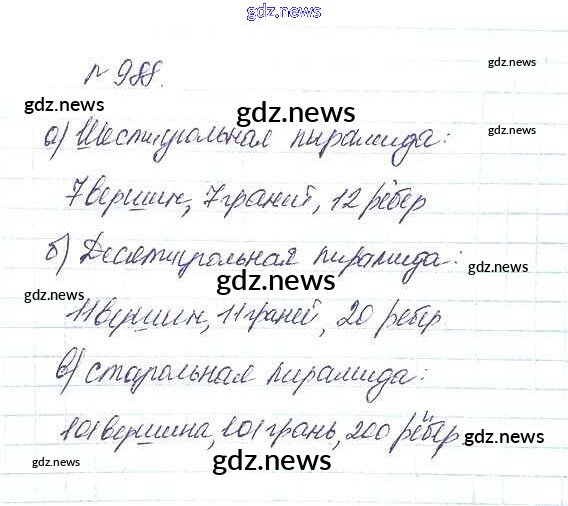 gdz.news
№ 988.
gdz.news
gdz.news
gdz.news
gdz.news
а) Шестиугольная пирамида:
7 вершин, 7 граней, 12 рёбер
б) Десятиугольная пирамида:
gdz.news
gdz.news
gdz.news
11 вершин, 11 граней, 20 ребер
в) стоугольная пирамида:
101 вершина, 101 грань, 200 рёбер
gdz.news
gdz.news
gdz.news